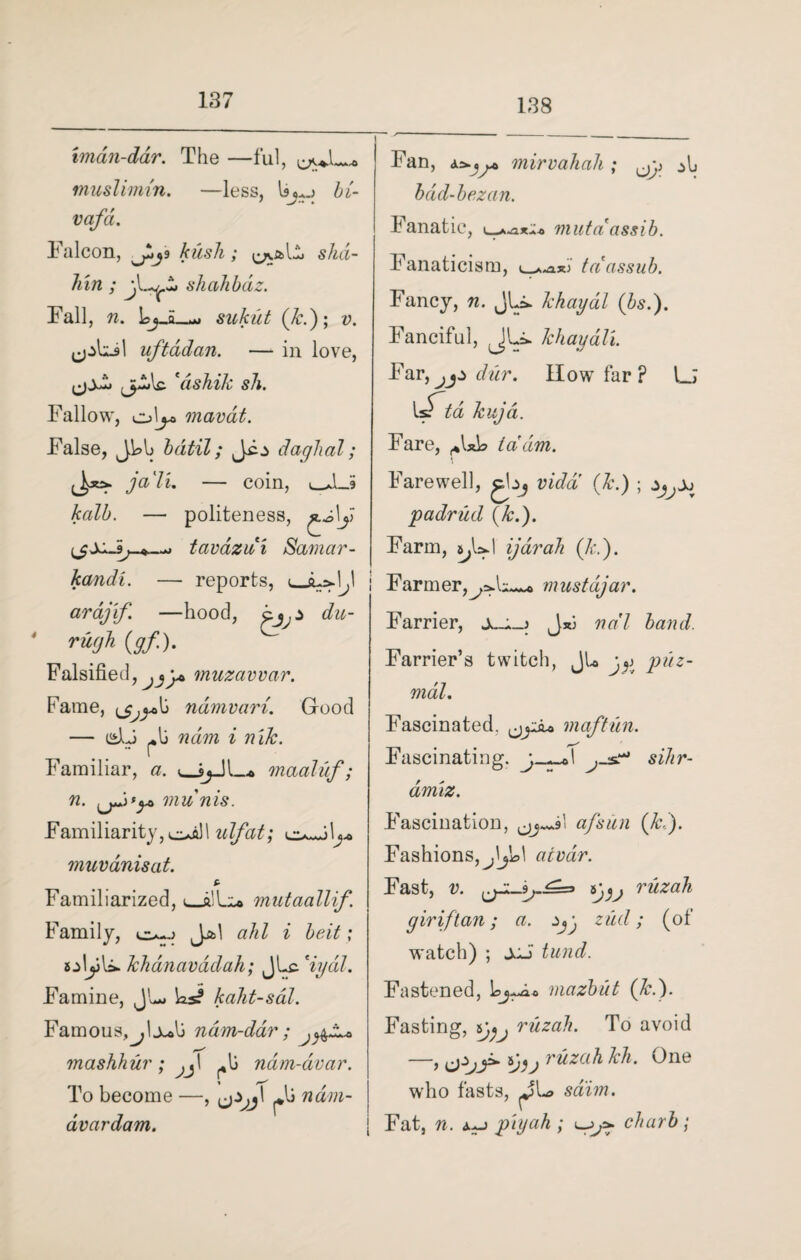 137
ímán-dár. The —ful, مسلمین
muslimín. —less, بیوفا bí-
vafá.
Falcon, قوش kúsh ; شاهین shá-
hín ; شهباز shahbáz.
Fall, n. سقوط sukút (k.); v.
افتادن uftádan. — in love,
عاشق شدن 'áshik sh.
Fallow, موات mavát.
False, باطل bátil; دغل daghal;
جعلی ja'lí. — coin, قلب
kalb. — politeness, تواضع
سمرقندی tavázu'i Samar-
kandí. — reports, اراجیف
arájíf. —hood, دروغ du-
rúgh (gf.).
Falsified, مزور muzavvar.
Fame, ناموری námvarí. Good
— نام نیک nám i ník.
Familiar, a. مالوف maalúf;
n. مؤنس mu'nis.
Familiarity, الفت ulfat; موانست
muvánisat.
Familiarized, متألف mutaallif.
Family, اهل بیت ahl i beit;
خانواده khánavádah; عیال 'iyál.
Famine, قحط سال kaht-sál.
Famous, نامدار nám-dár; مشهور
mashhúr; نام آور nám-ávar.
To become —, نام آوردن nám-
ávardam.
138
Fan, مروحه mirvahah; باد بزن
bád-bezan.
Fanatic, متعصب muta'assib.
Fanaticism, تعصب ta'assub.
Fancy, n. خیال khayál (bs.).
Fanciful, خیالی khayálí.
Far, دور dúr. How far? تا
کجا tá kujá.
Fare, طعام ta'ám.
Farewell, وداع vidá' (k.) ; پدرود
padrúd (k.).
Farm, اجاره ijárah (k.).
Farmer, مستاجر mustájar.
Farrier, نعل بند na'l band.
Farrier's twitch, پوز مال púz-
mál.
Fascinated, مفتون maftún.
Fascinating, سحر آمیز sihr-
ámíz.
Fascination, افسون afsún (k.).
Fashions, اطوار atvár.
Fast, v. روزه گرفتن rúzah
giriftan; a. زود zúd; (of
watch) ; تند tund.
Fastened, مضبوط mazbút (k.).
Fasting, روزه rúzah. To avoid
—, روزه خوردن rúzah kh. One
who fasts, صائم sáim.
Fat, n. پیه píyah ; چرب charb ;